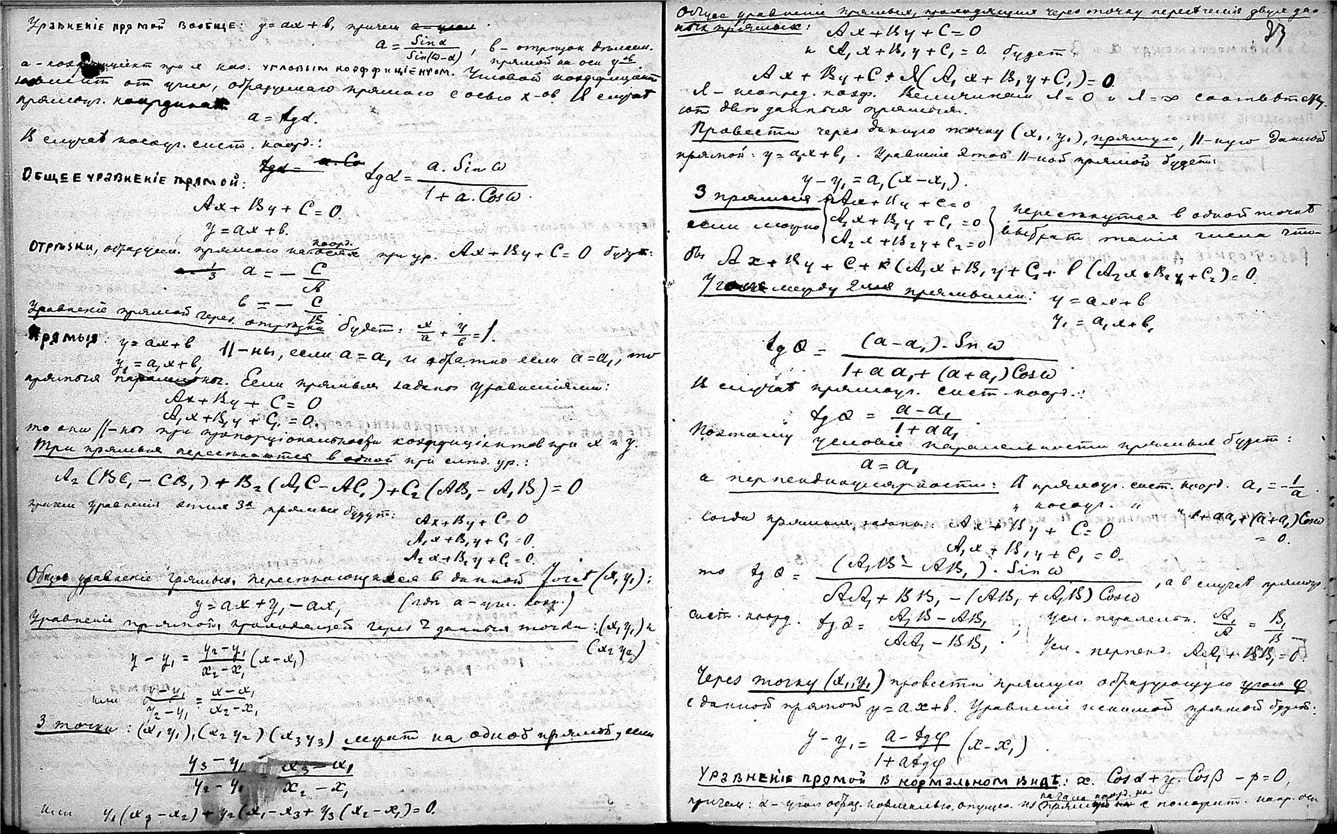 Уравненіе прямой вообще: y = ax + b, причем
a = Sin α / Sin(ω-α), b – отрезок
прямой на оси y-ов
a – коэффиціент при x наз. угловым коэффиціентом. Угловой коэффиціент
зависит от угла, образуемаго прямою с осью x-ов. В случаѣ
прямоуг. координат
a = tg α.
В случаѣ косоуг. сист. коорд.:
tg α = a. Sin ω / 1 + a. Cos ω.
Общее уравненіе прямой:
Ax + By + C = 0.
y = ax + b.
Отрѣзки, образуем. прямою на коорд. осях при ур. Ax + By + C = 0 будут:
a = – C/A
b = – C/B
Уравненіе прямой через отрезки будет: x/a + y/b = 1.
Прямыя: y = ax + b
y₁ = a₁x + b₁ ||-ны, если a = a₁ и обратно если a = a₁, то
прямыя параллельны. Если прямыя заданы уравненіями:
Ax + By + C = 0
A₁x + B₁y + C₁ = 0,
то они ||-ны при пропорціональности коэффиціентов при x и y.
Три прямыя пересѣкаются в одной при след. ур.:
A₂(BC₁ – CB₁) + B₂(A₁C – AC₁) + C₂(AB₁ – A₁B) = 0
причем уравненія этих 3х прямых будут:
Ax + By + C = 0
A₁x + B₁y + C₁ = 0.
A₂x + B₂y + C₂ = 0.
Общее уравненіе прямых, пересекающихся в данной (x₁y₁):
y = ax + y₁ – ax₁ (где a – угл. коэф.)
Уравненіе прямой, проходящей через 2 данныя точки: (x₁y₁) и
(x₂y₂)
y – y₁ = y₂–y₁ / x₂–x₁ (x–x₁)
или y–y₁ / y₂–y₁ = x–x₁ / x₂–x₁
3 точки: (x₁y₁), (x₂y₂) (x₃y₃) лежат на одной прямой, если
y₃–y₁ / y₂–y₁ = x₃–x₁ / x₂–x₁
или y₁(x₃–x₂) + y₂(x₁–x₃ + y₃(x₂–x₁) = 0.
Общее уравненіе прямых, проходящих через точку пересѣченія двух дан-
ных прямых: Ax + By + C = 0
и A₁x + B₁y + C₁ = 0. будет:
Ax + By + C + λ(A₁x + B₁y + C₁) = 0
λ – неопред. коэф. Величинам λ = 0 и λ = ∞ соответств.
эти две данныя прямыя.
Провести через данную точку (x₁, y₁), прямую, ||-ную данной
прямой: y = a₁x + b₁. Уравненіе этой ||-ной прямой будет:
y – y₁ = a₁(x–x₁).
3 прямыя Ax + By + C = 0
A₁x + B₁y + C₁ = 0
A₂x + B₂y + C₂ = 0 пересѣкутся в одной точкѣ
если можно выбрать такія числа что-
бы Ax + By + C + k(A₁x + B₁y + C₁ + l(A₂x + B₂y + C₂) = 0.
Угол между 2мя прямыми: y = ax + b
y₁ = a₁x + b₁
tg Θ = (a–a₁). Sin ω / 1 + aa₁ + (a+a₁) Cos ω
В случаѣ прямоуг. сист. коорд.:
tg Θ = a–a₁ / 1 + aa₁
Поэтому условіе параллельности прямых будет:
a = a₁
а перпендикулярности: В прямоуг. сист. коорд. a₁ = –1/a
" косоуг. " " 1 + aa₁ + (a+a₁) Cos ω
= 0.
Когда прямыя заданы: Ax + By + C = 0
A₁x + B₁y + C₁ = 0.
то tg Θ = (A₁B – AB₁). Sin ω / AA₁ + BB₁ – (AB₁ + A₁B) Cos ω, а в случаѣ прямоуг.
сист. коорд. tg Θ = A₁B – AB₁ / AA₁ – BB₁; Усл. параллельн. A₁/A = B₁/B
Усл. перпенд. AA₁ + BB₁ = 0.
Через точку (x₁, y₁) провести прямую образующую угол φ
с данной прямой y = ax + b. Уравненіе искомой прямой будет:
y – y₁ = a – tg φ / 1 + a tg φ (x–x₁).
Уравненіе прямой в нормальном видѣ: x. Cos α + y. Cos β – p = 0,
причем: α – угол образ. нормалью, опущен. из начала коорд. на прямую с положит. напр. оси